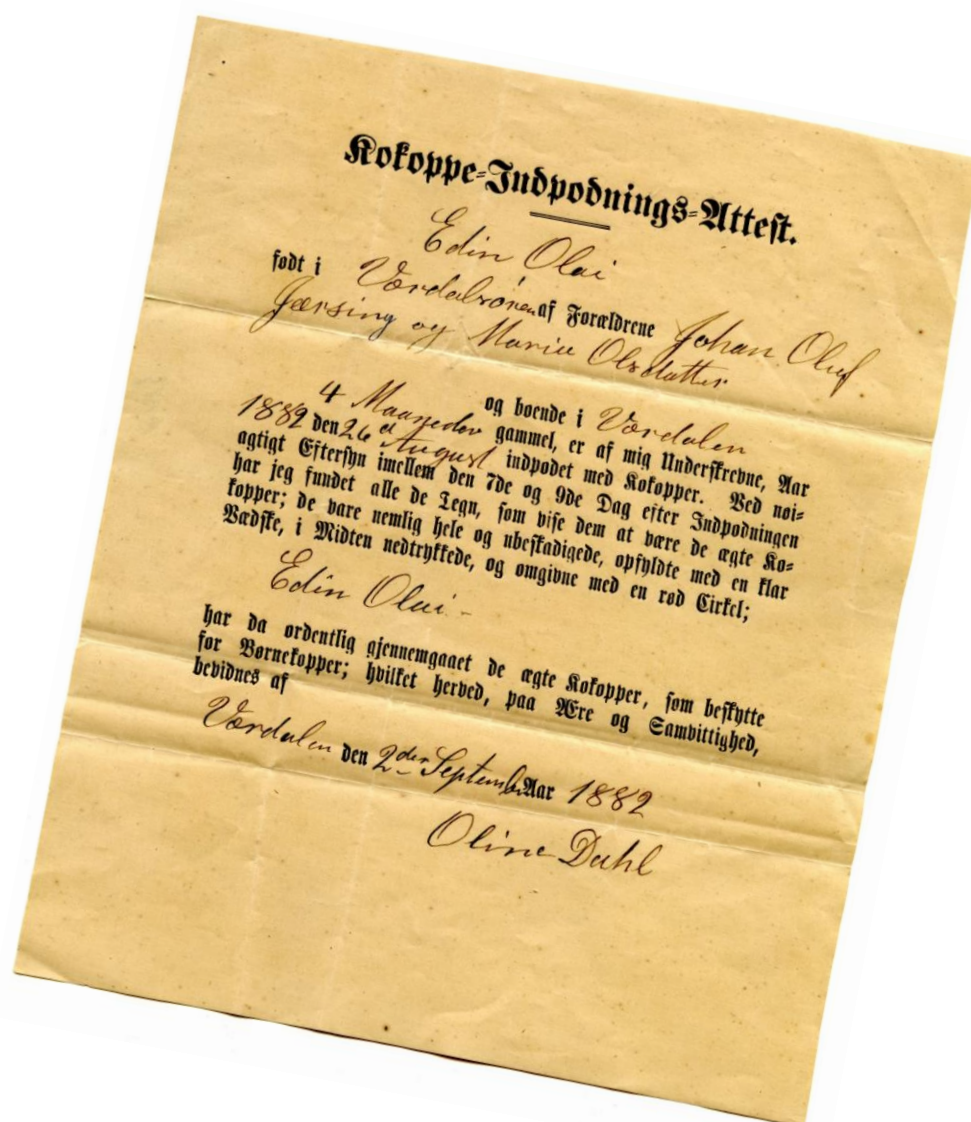 Kokoppe-Indpodnings-Attest.
Edin Olai
født i Værdalsøren af Forældrene Johan Oluf
Jærsing og Marie Olsdatter
og boende i Værdalen
4 Maaneder gammel, er af mig Underskrevne, Aar
1882 den 26de August indpodet med Kokopper. Ved nøi-
agtigt Eftersyn imellem den 7de og 9de Dag efter Indpodningen
har jeg fundet alle de Tegn, som vise dem at være de ægte Ko-
kopper; de vare nemlig hele og ubeskadigede, opfyldte med en klar
Vædske, i Midten nedtrykkede, og omgivne med en rød Cirkel;
Edin Olai -
har da ordentlig gjennemgaaet de ægte Kokopper, som beskytte
for Børnekopper; hvilket herved, paa Ære og Samvittighed,
bevidnes af
Værdalen den 2den September Aar 1882
Oline Dahl